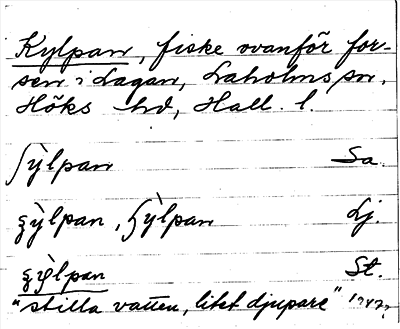 Kylpan, fiske ovanför for-
sen i Lagan, Laholms sn,
Höks hd, Hall. l.
ʃỳlpan Sa.
ȿỳlpan, ʃỳlpan Lj.
St.
"stilla vatten, litet djupare"